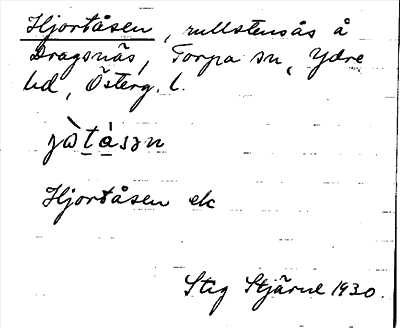 Hjortåsen, rullstensås å
Dragsnäs, Torpa sn, Ydre
hd, Österg. l.
jò̱tàsən
Hjortåsen ek
Stig Stjärne 1930.